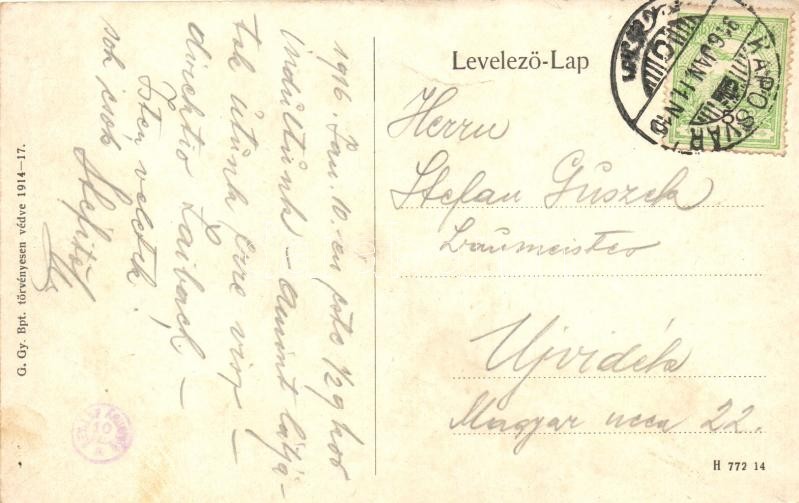 1916. Jan. 10.-én este 1/2 9 kor
indultunk – Amint látjá-
tok útunk Erre visz –
direktió Laibach –
Isten veletek!
sok csók
G. Gy. Bpt. törvényesen védve 1914–17.
Levelező-Lap
KAPOSVÁR
916 JAN. 11. N
Herrn
Stefan Guszek
Baumeister
Ujvidék
Magyar ucca 22.
H 772 14